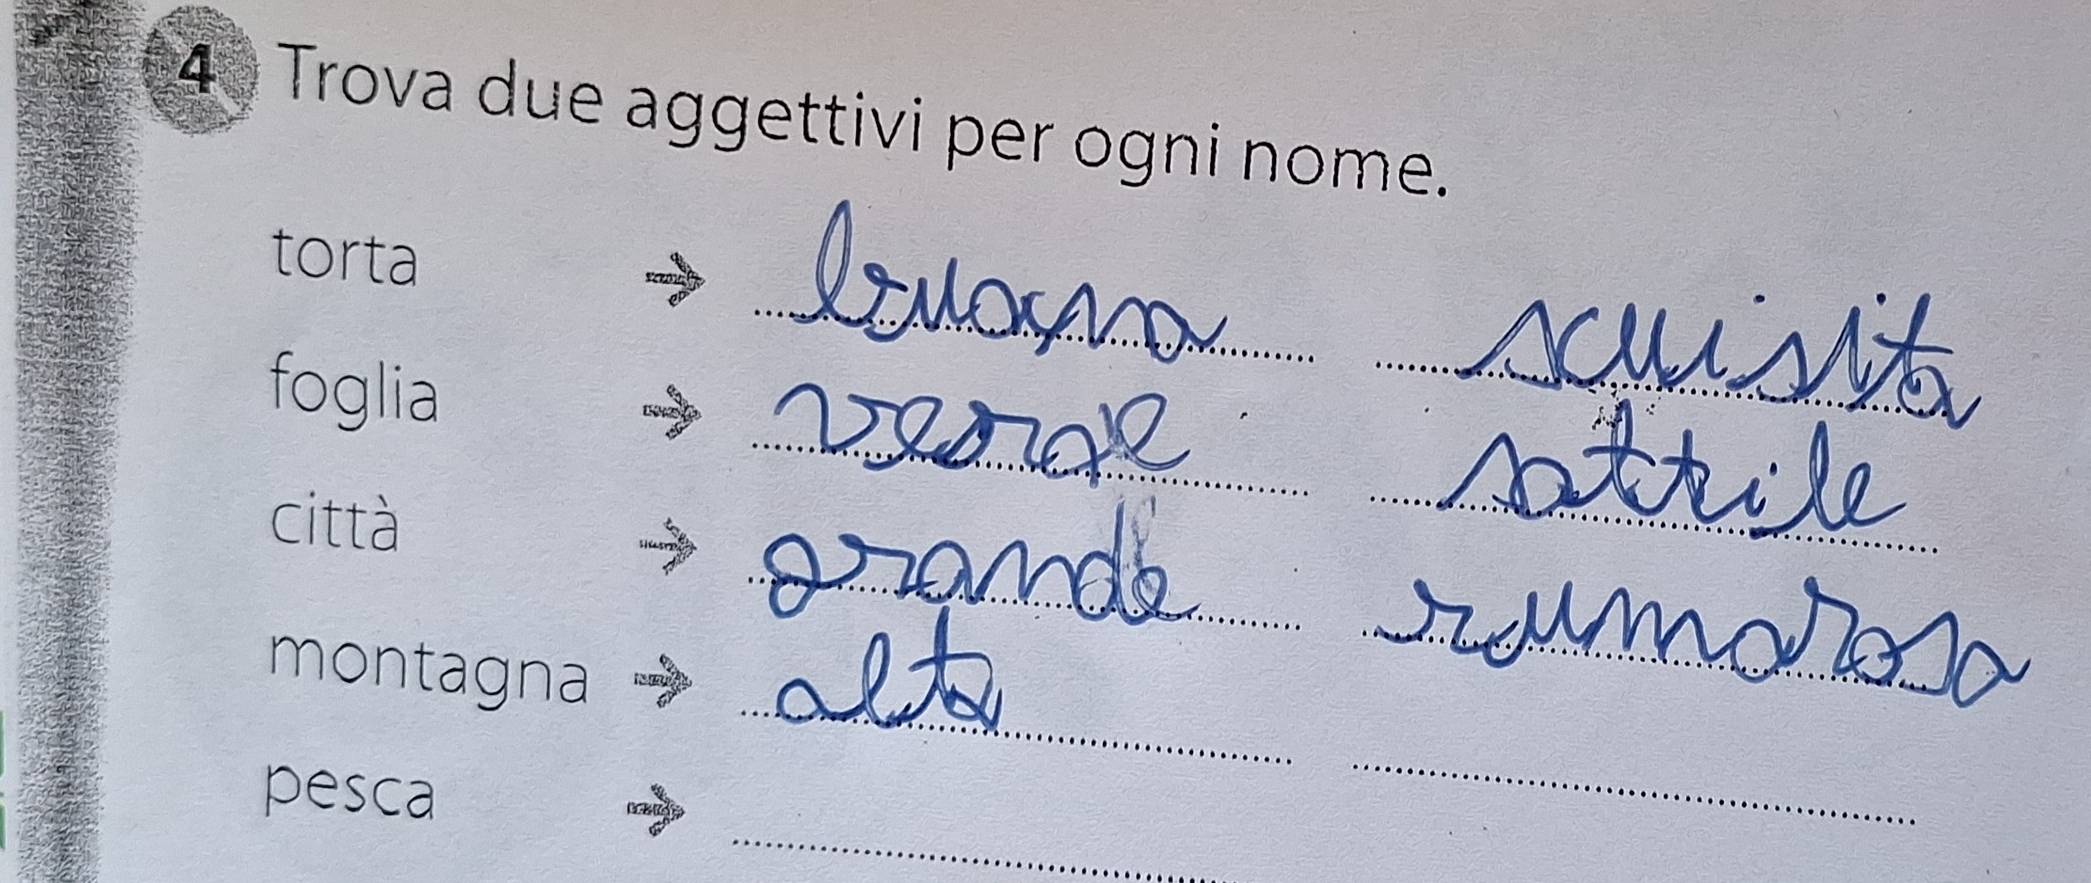 4 Trova due aggettivi per ogni nome.
torta → bruogna scuisita
foglia → verde sottile
città → grande rumorosa
montagna → alta
pesca →